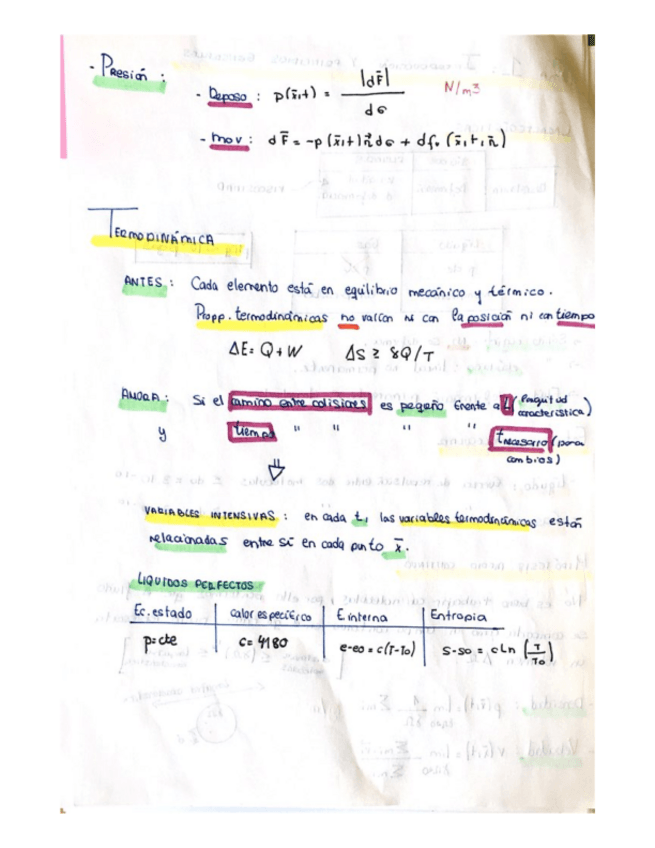 - Presión :
- Reposo : p(x̄,t) = |dF̄| / dσ N/m3
- mov : dF̄ = -p(x̄,t)n̄dσ + dfv (x̄,t,n̄)
TERMODINÁMICA
ANTES : Cada elemento está en equilibrio mecánico y térmico.
Propp. termodinámicas no varían ni con la posición ni con tiempo
ΔE = Q + W ΔS ≥ δQ/T
AHORA : Si el camino entre colisiones es pequeño frente a L (longitud característica)
y tiempo " " " " tnecesario (para cambios)
⇓
VARIABLES INTENSIVAS : en cada t, las variables termodinámicas están
relacionadas entre sí en cada punto x̄.
LIQUIDOS PERFECTOS
Ec. estado | calor específico | E. interna | Entropia
ρ=cte | c= 4180 | e-e0 = c(T-T0) | s-s0 = cLn (T/T0)